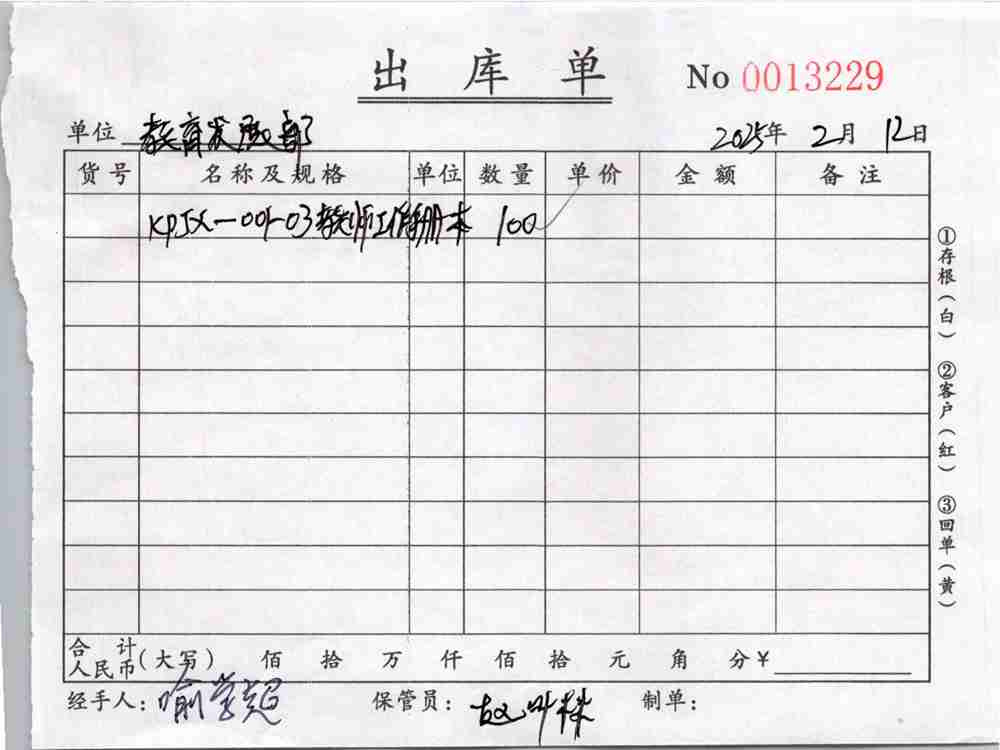 出库单 No 0013229
单位 教育发展部 2025年 2月 12日
货号 名称及规格 单位 数量 单价 金额 备注
KPJX-001-03教师工作手册 本 100
合计人民币(大写) 佰 拾 万 仟 佰 拾 元 角 分¥
经手人:喻学超 保管员: 制单:
①存根(白) ②客户(红) ③回单(黄)